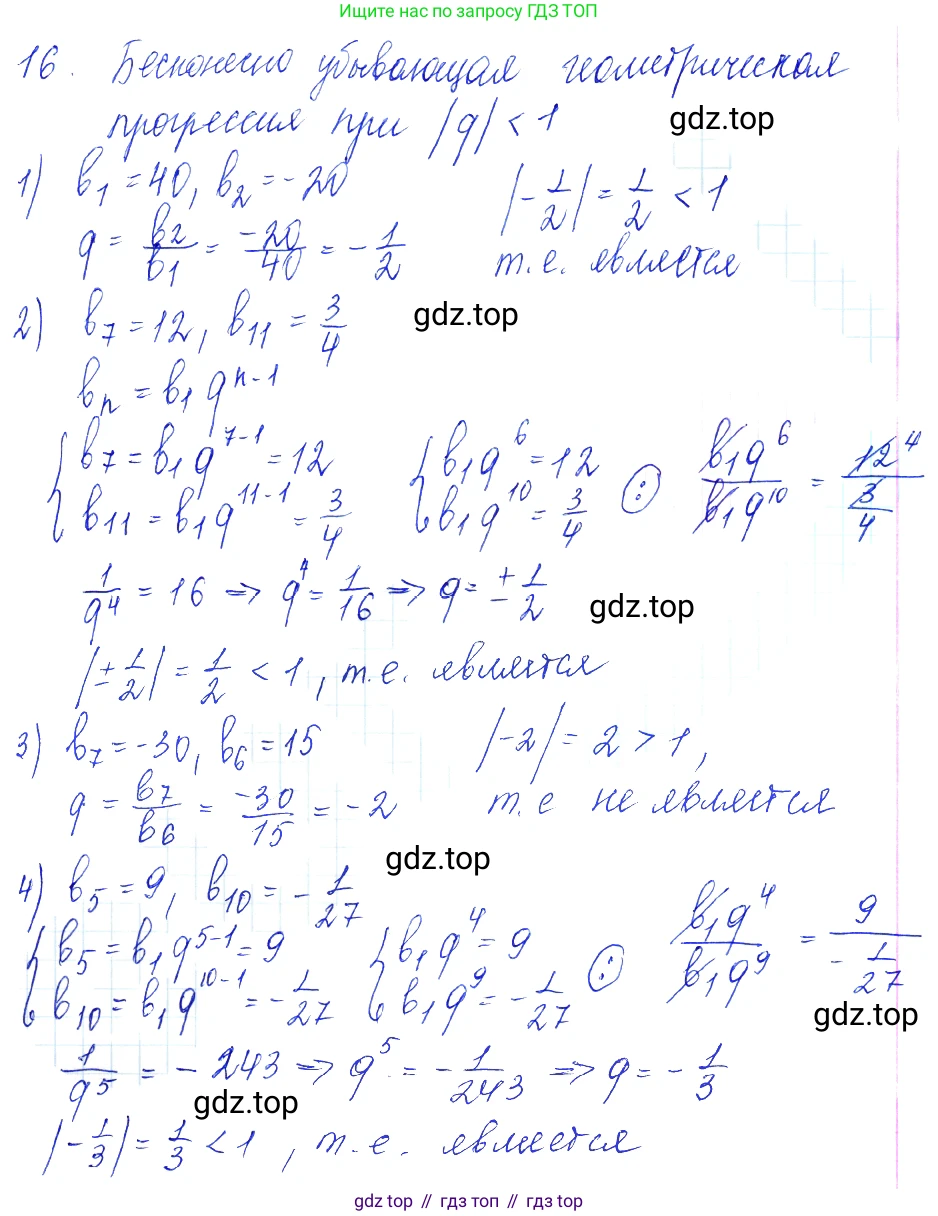 Ищите нас по запросу ГДЗ ТОП
16. Бесконечно убывающая геометрическая
прогрессия при |q| < 1
gdz.top
1) b₁ = 40, b₂ = -20
|-1/2| = 1/2 < 1
q = b₂/b₁ = -20/40 = -1/2
т.е. является
2) b₇ = 12, b₁₁ = 3/4
gdz.top
bₙ = b₁qⁿ⁻¹
{b₇ = b₁q⁷⁻¹ = 12
b₁₁ = b₁q¹¹⁻¹ = 3/4
{b₁q⁶ = 12
b₁q¹⁰ = 3/4
:
b₁q⁶/b₁q¹⁰ = 12⁴/(3/4)
1/q⁴ = 16 => q⁴ = 1/16 => q = ±1/2
gdz.top
|±1/2| = 1/2 < 1, т.е. является
3) b₇ = -30, b₆ = 15
|-2| = 2 > 1,
q = b₇/b₆ = -30/15 = -2
т.е не является
gdz.top
4) b₅ = 9, b₁₀ = -1/27
{b₅ = b₁q⁵⁻¹ = 9
b₁₀ = b₁q¹⁰⁻¹ = -1/27
{b₁q⁴ = 9
b₁q⁹ = -1/27
:
b₁q⁴/b₁q⁹ = 9/(-1/27)
gdz.top
1/q⁵ = -243 => q⁵ = -1/243 => q = -1/3
gdz.top
|-1/3| = 1/3 < 1, т.е. является
gdz top // гдз топ // гдз top